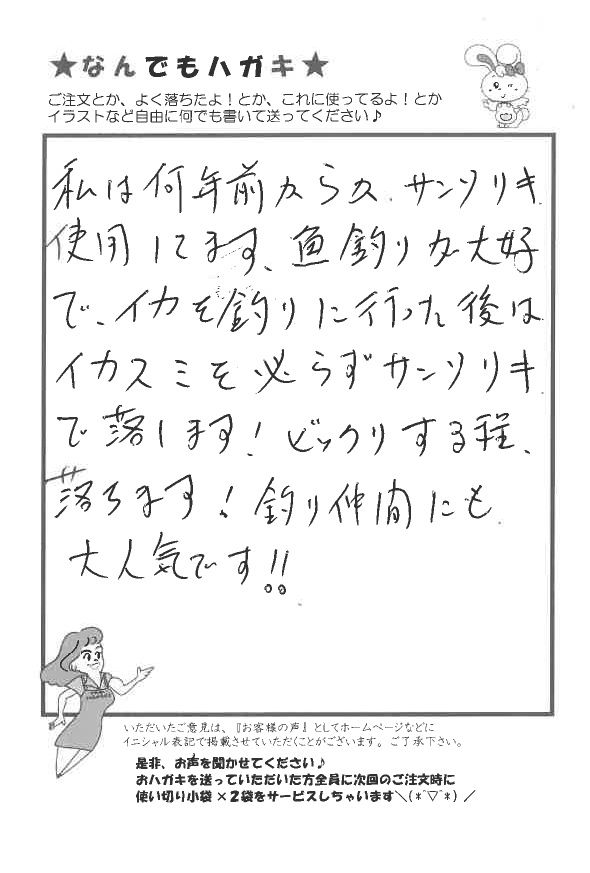 ★なんでもハガキ★
ご注文とか、よく落ちたよ！とか、これに使ってるよ！とか
イラストなど自由に何でも書いて送ってください♪
私は何年前からか、サンソリキ
使用してます、魚釣りが大好
で、イカを釣りに行った後は
イカスミを必らずサンソリキ
で落します！ビックリする程、
落ちます！釣り仲間にも
大人気です!!
いただいたご意見は、『お客様の声』としてホームページなどに
イニシャル表記で掲載させていただくことがございます。ご了承下さい。
是非、お声を聞かせてください♪
おハガキを送っていただいた方全員に次回のご注文時に
使い切り小袋×２袋をサービスしちゃいます＼(*´▽`*)／